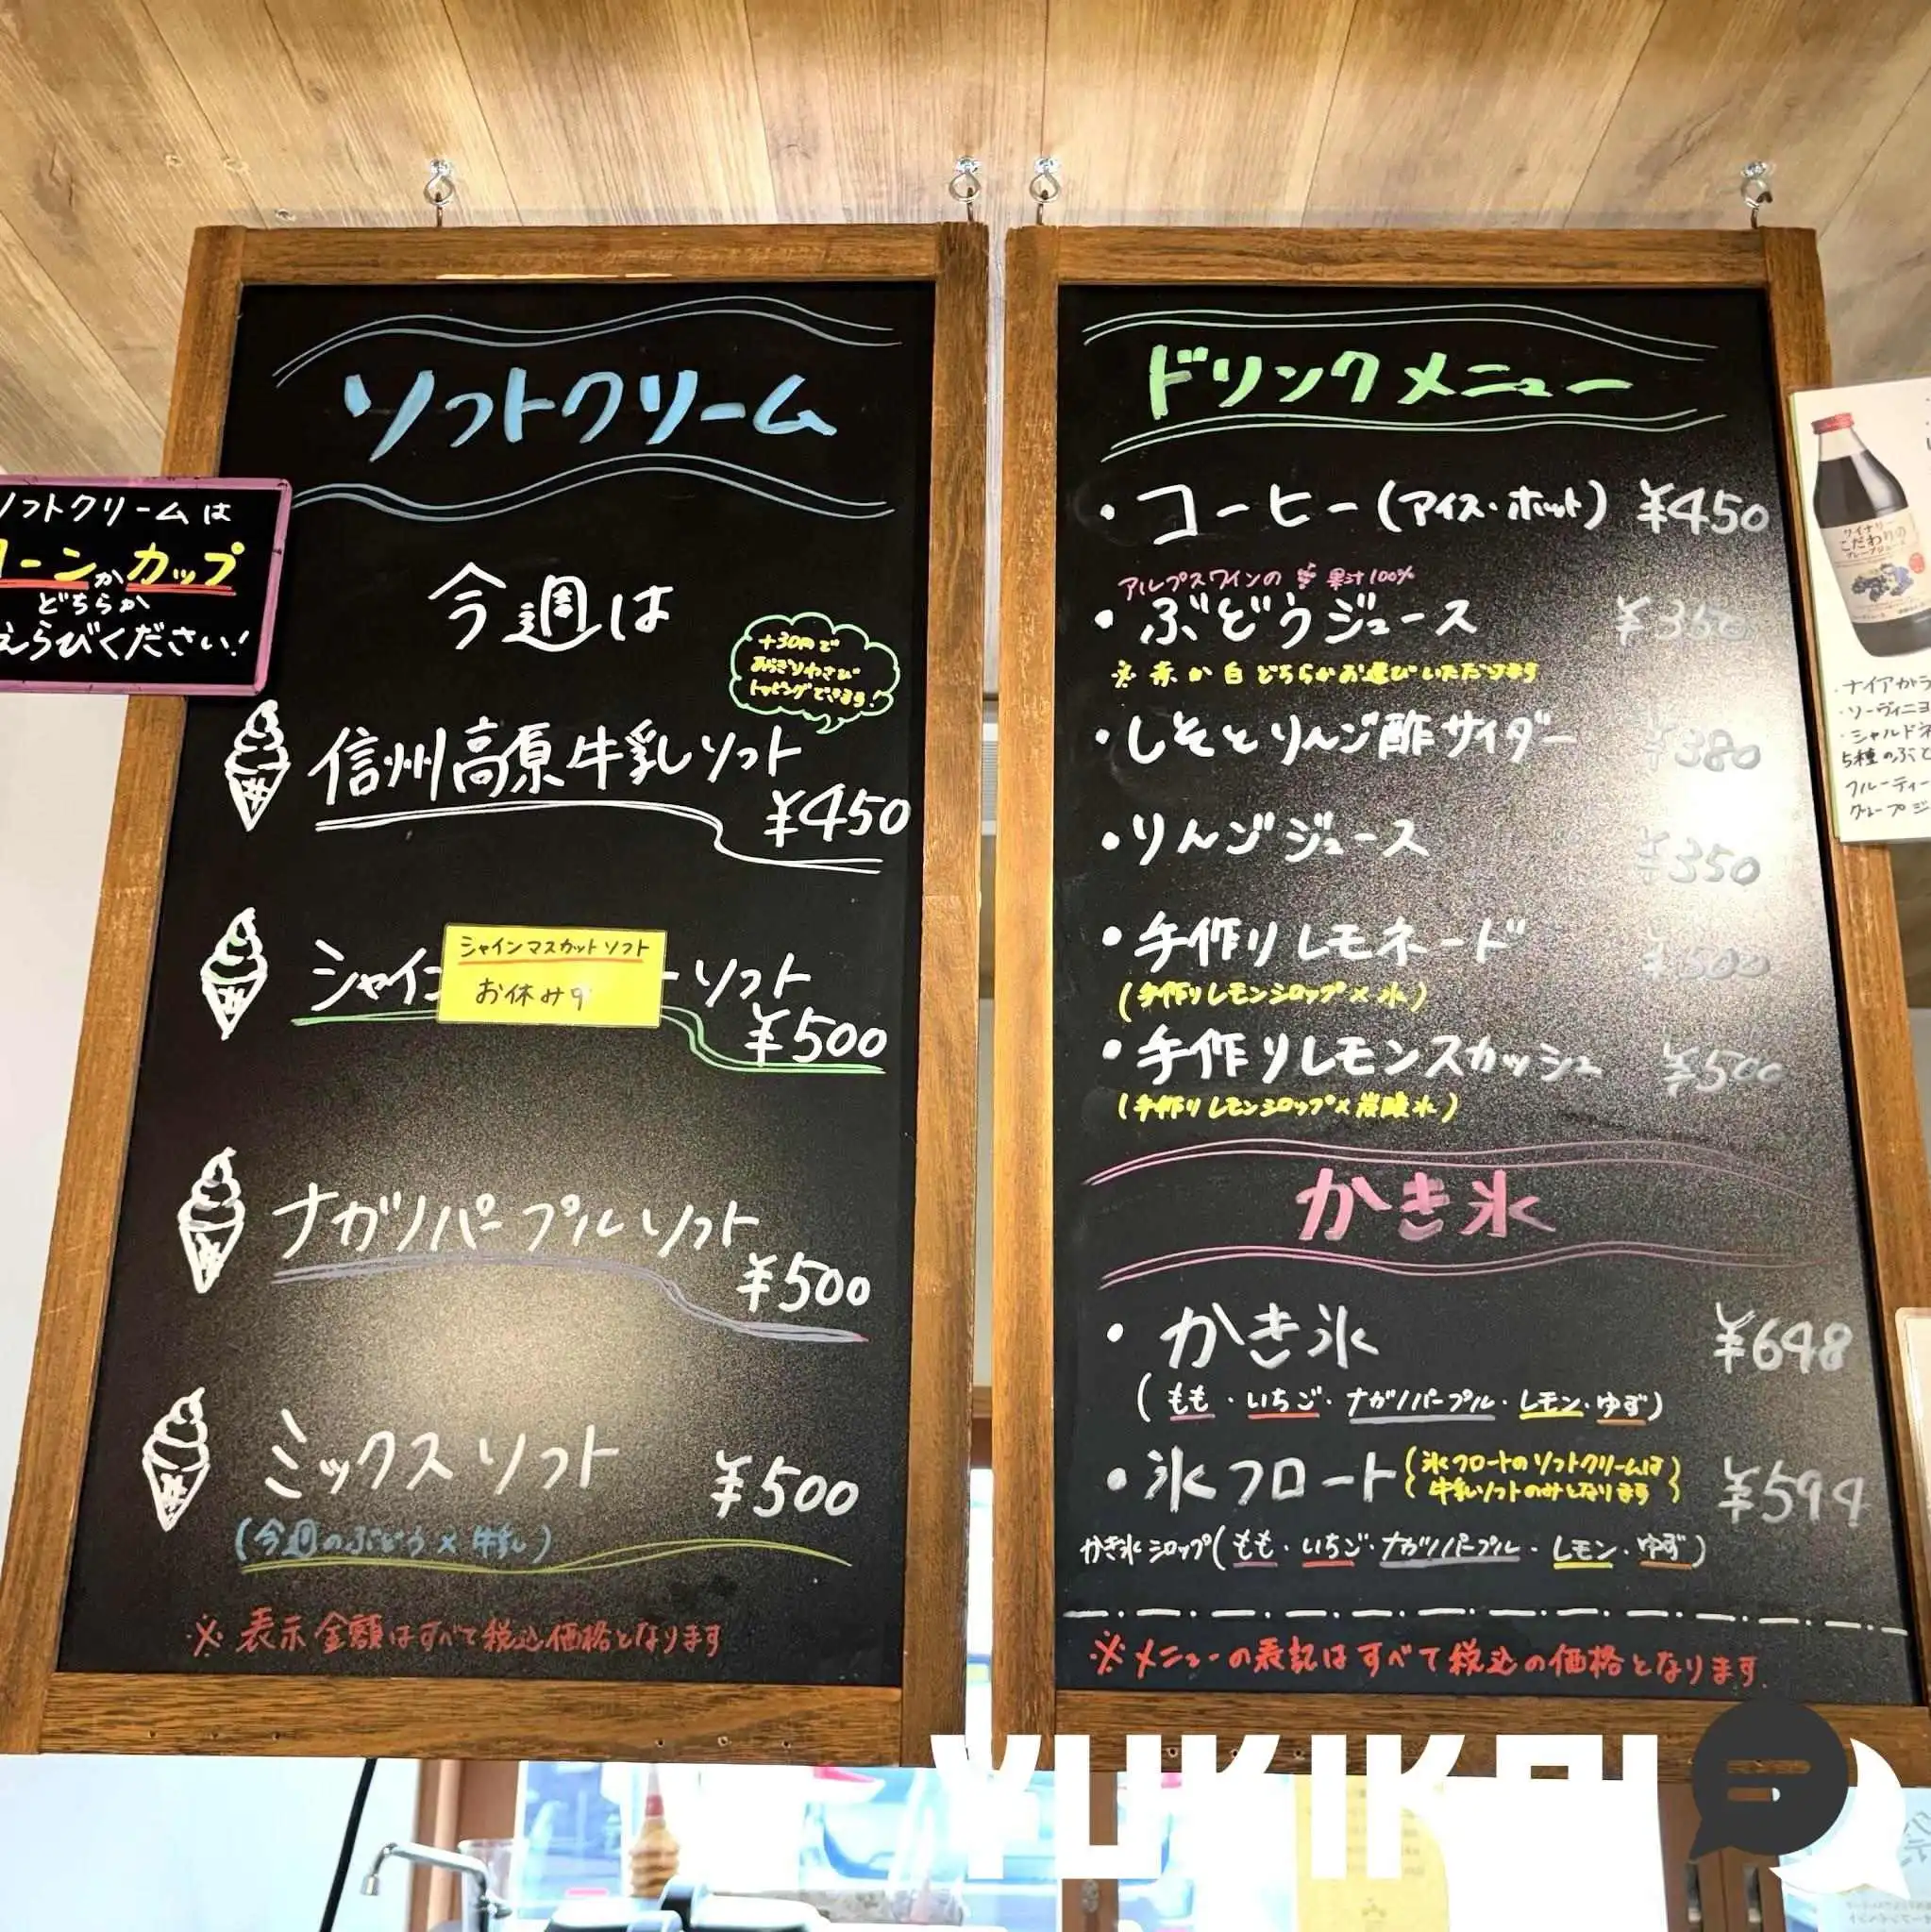 ソフトクリームは
コーンかカップ
どちらか
えらびください!
ソフトクリーム
今週は
+30円で
あらぎりわさび
トッピングできます!
信州高原牛乳ソフト
¥450
シャイン
シャインマスカットソフト
お休み中
ーソフト
¥500
ナガノパープルソフト
¥500
ミックスソフト ¥500
(今週のぶどう×牛乳)
※表示金額はすべて税込価格となります
ドリンクメニュー
・コーヒー(アイス・ホット) ¥450
アルプスワインの 果汁100%
・ぶどうジュース
※赤か白どちらかお選びいただけます
・しそとりんご酢サイダー ¥380
・りんごジュース ¥350
・手作りレモネード ¥500
(手作りレモンシロップ×水)
・手作りレモンスカッシュ ¥500
(手作りレモンシロップ×炭酸水)
かき氷
・かき氷 ¥648
(もも・いちご・ナガノパープル・レモン・ゆず)
・氷フロート
氷フロートのソフトクリームは
牛乳ソフトのみとなります
¥594
かき氷シロップ(もも・いちご・ナガノパープル・レモン・ゆず)
※メニューの表記はすべて税込の価格となります.
ワイナリー
こだわりの
グレープジュース
・ナイアガラ
・ソーヴィニヨ
・シャルドネ
5種のぶど
フルーティー
グレープジ